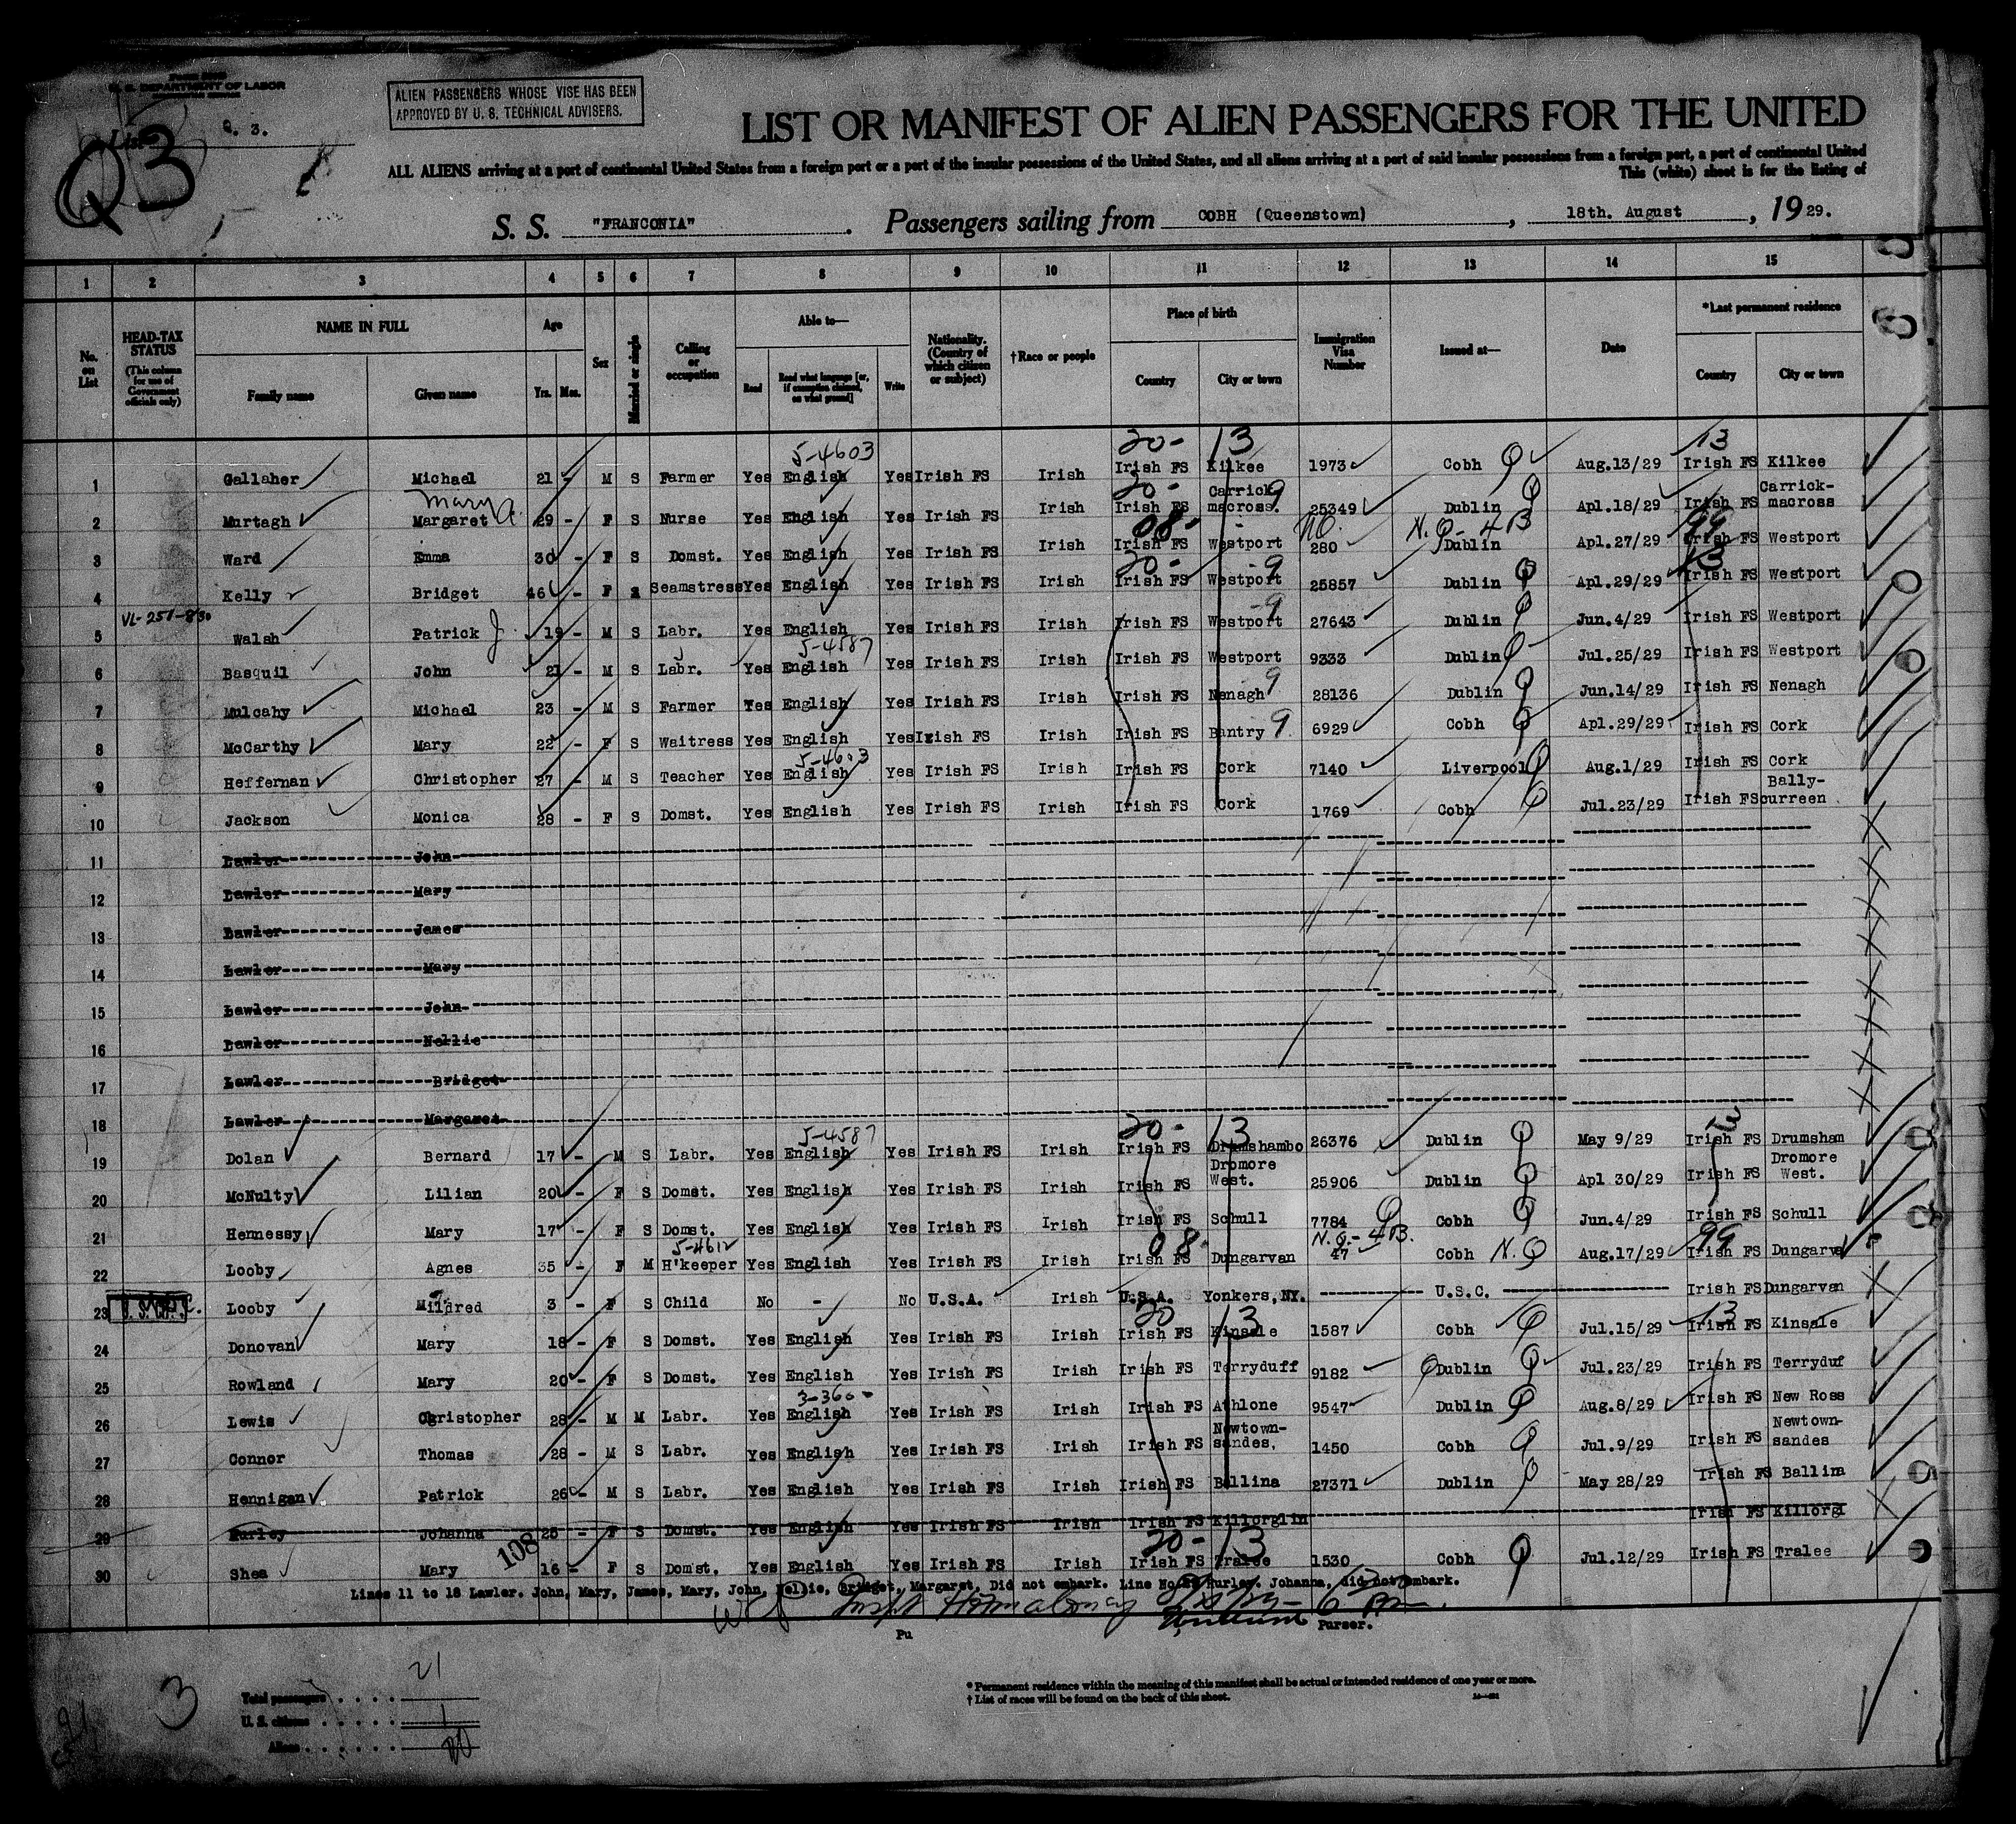 U. S. DEPARTMENT OF LABOR
ALIEN PASSENGERS WHOSE VISE HAS BEEN
APPROVED BY U. S. TECHNICAL ADVISERS.
List Q. 3.
Q3
LIST OR MANIFEST OF ALIEN PASSENGERS FOR THE UNITED
ALL ALIENS arriving at a port of continental United States from a foreign port or a port of the insular possessions of the United States, and all aliens arriving at a port of said insular possessions from a foreign port, a port of continental United
This (white) sheet is for the listing of
S. S. "FRANCONIA". Passengers sailing from COBH (Queenstown), 18th. August, 1929.
1 2 3 4 5 6 7 8 9 10 11 12 13 14 15
No. on List
HEAD-TAX STATUS (This column for use of Government officials only)
NAME IN FULL Family name Given name
Age Yrs. Mos.
Sex
Married or single
Calling or occupation
Able to— Read Read what language [or, if exemption claimed, on what ground] Write
Nationality. (Country of which citizen or subject)
†Race or people
Place of birth Country City or town
Immigration Visa Number
Issued at—
Date
*Last permanent residence Country City or town
5-4603 20- 13 13
1 Gallaher Michael 21 - M S Farmer Yes English Yes Irish FS Irish Irish FS Kilkee 1973 Cobh Aug.13/29 Irish FS Kilkee
Mary A. 20- 9
2 Murtagh Margaret 29 - F S Nurse Yes English Yes Irish FS Irish Irish FS Carrick-macross. 25349 Dublin Apl.18/29 Irish FS Carrick-macross
08- - NO. N.Q-4B 99
3 Ward Emma 30 - F S Domst. Yes English Yes Irish FS Irish Irish FS Westport 280 Dublin Apl.27/29 Irish FS Westport
20- -9 13
4 Kelly Bridget 46 - F S Seamstress Yes English Yes Irish FS Irish Irish FS Westport 25857 Dublin Apl.29/29 Irish FS Westport
VL-251-8/30 -9
5 Walsh Patrick J. 19 - M S Labr. Yes English Yes Irish FS Irish Irish FS Westport 27643 Dublin Jun.4/29 Irish FS Westport
5-4587
6 Basquil John 21 - M S Labr. Yes English Yes Irish FS Irish Irish FS Westport 9333 Dublin Jul.25/29 Irish FS Westport
7 Mulcahy Michael 23 - M S Farmer Yes English Yes Irish FS Irish Irish FS Nenagh 9 28136 Dublin Jun.14/29 Irish FS Nenagh
8 McCarthy Mary 22 - F S Waitress Yes English Yes Irish FS Irish Irish FS Bantry 9 6929 Cobh Apl.29/29 Irish FS Cork
5-4603
9 Heffernan Christopher 27 - M S Teacher Yes English Yes Irish FS Irish Irish FS Cork 7140 Liverpool Aug.1/29 Irish FS Cork
10 Jackson Monica 28 - F S Domst. Yes English Yes Irish FS Irish Irish FS Cork 1769 Cobh Jul.23/29 Irish FS Bally-curreen
11 Lawler John
12 Lawler Mary
13 Lawler James
14 Lawler Mary
15 Lawler John
16 Lawler Nellie
17 Lawler Bridget
18 Lawler Margaret
5-4587 20- 13 13
19 Dolan Bernard 17 - M S Labr. Yes English Yes Irish FS Irish Irish FS Drumshambo 26376 Dublin May 9/29 Irish FS Drumsham
20 McNulty Lilian 20 - F S Domst. Yes English Yes Irish FS Irish Irish FS Dromore West. 25906 Dublin Apl 30/29 Irish FS Dromore West.
21 Hennessy Mary 17 - F S Domst. Yes English Yes Irish FS Irish Irish FS Schull 7784 Cobh Jun.4/29 Irish FS Schull
5-4612 08- N.Q.-4B. 99
22 Looby Agnes 35 - F M H'keeper Yes English Yes Irish FS Irish Irish FS Dungarvan 47 Cobh N.Q Aug.17/29 Irish FS Dungarva
23 Looby Mildred 3 - F S Child No - No U.S.A. Irish U.S.A. Yonkers, NY. U.S.C. Irish FS Dungarvan
20 13 13
24 Donovan Mary 18 - F S Domst. Yes English Yes Irish FS Irish Irish FS Kinsale 1587 Cobh Jul.15/29 Irish FS Kinsale
25 Rowland Mary 20 - F S Domst. Yes English Yes Irish FS Irish Irish FS Terryduff 9182 Dublin Jul.23/29 Irish FS Terryduf
3-360-
26 Lewis Christopher 28 - M M Labr. Yes English Yes Irish FS Irish Irish FS Athlone 9547 Dublin Aug.8/29 Irish FS New Ross
27 Connor Thomas 28 - M S Labr. Yes English Yes Irish FS Irish Irish FS Newtown-sandes. 1450 Cobh Jul.9/29 Irish FS Newtown-sandes
28 Hennigan Patrick 26 - M S Labr. Yes English Yes Irish FS Irish Irish FS Ballina 27371 Dublin May 28/29 Irish FS Ballina
29 Hurley Johanna 25 - F S Domst. Yes English Yes Irish FS Irish Irish FS Killorglin Irish FS Killorgl
108 20- 13
30 Shea Mary 16 - F S Domst. Yes English Yes Irish FS Irish Irish FS Tralee 1530 Cobh Jul.12/29 Irish FS Tralee
Lines 11 to 18 Lawler. John, Mary, James, Mary, John, Nellie, Bridget, Margaret, Did not embark. Line No. Hurley. Johanna, did not embark.
Purser.
Pu
21
Total passengers
U. S. citizens 1
Aliens 20
3
* Permanent residence within the meaning of this manifest shall be actual or intended residence of one year or more.
† List of races will be found on the back of this sheet.